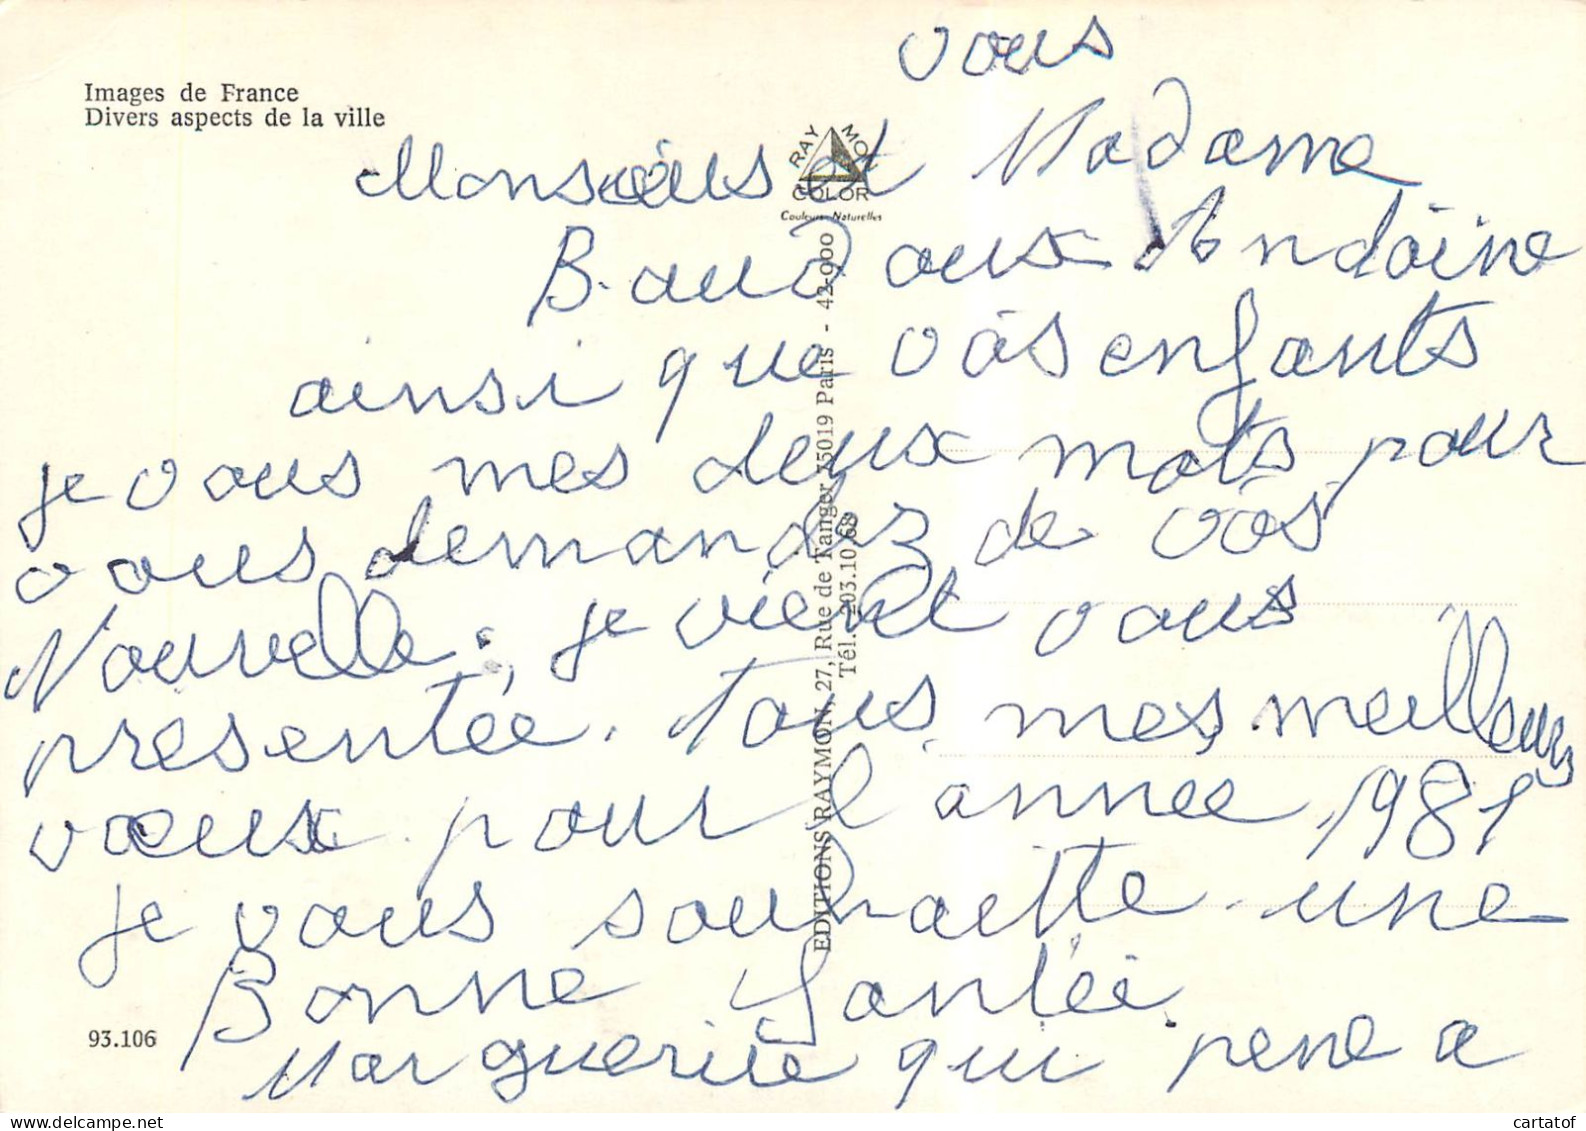 vous
Images de France
Divers aspects de la ville
Monsieus et Madame
Baudoux Andoine
ainsi que vos enfants
je vous mes deux mots pour
vous demandez de vos
Nouvelle. je vient vous
presentée. tous mes meilleurs
vœux pour l'annee 1981
je vous souhaitte une
Bonne Santée
Marguerite qui pene a
93.106
RAYMON
COLOR
Couleurs Naturelles
EDITIONS RAYMON, 27, Rue de Tanger 75019 Paris - 42-900
Tél. 203.10.68
cartatof